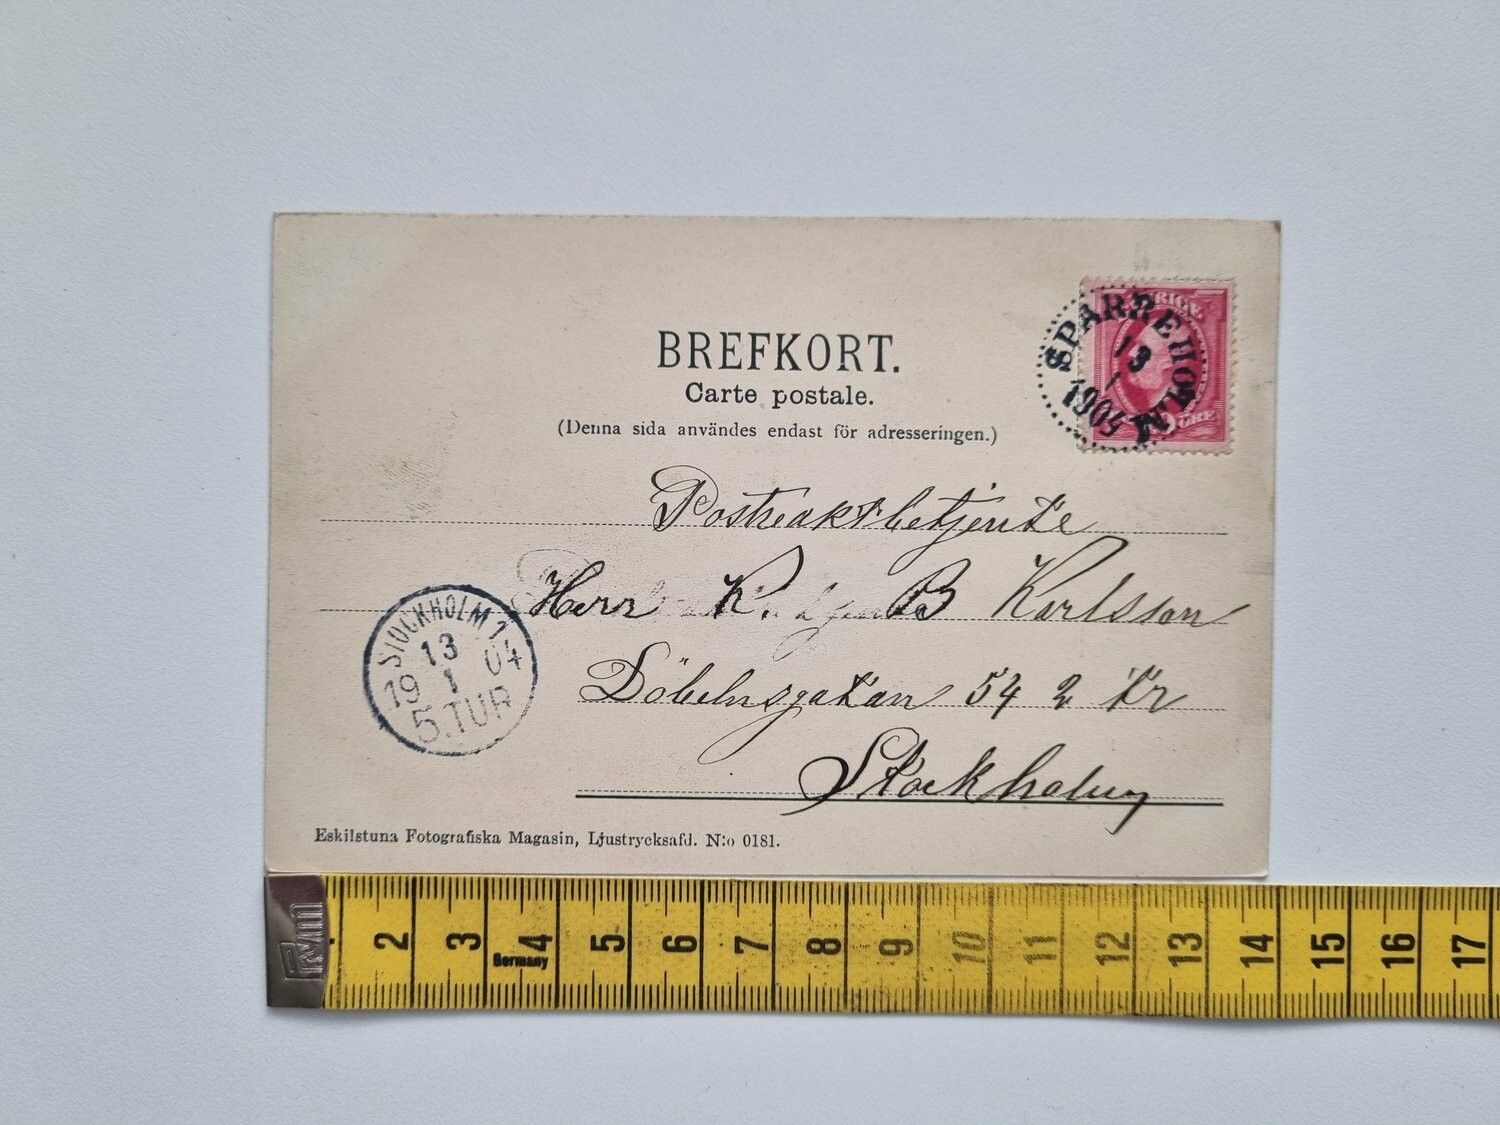 BREFKORT.
Carte postale.
(Denna sida användes endast för adresseringen.)
SVERIGE
ÖRE
SPARREHOLM
13
1
1904
Postreaktbetjente
Herr K. B Karlsson
Döbelnsgatan 54 2 tr
Stockholm
STOCKHOLM 1
13
19 1 04
5.TUR
Eskilstuna Fotografiska Magasin, Ljustrycksafd. N:o 0181.
PWM
2 3 4 5 6 7 8 9 10 11 12 13 14 15 16 17
Germany